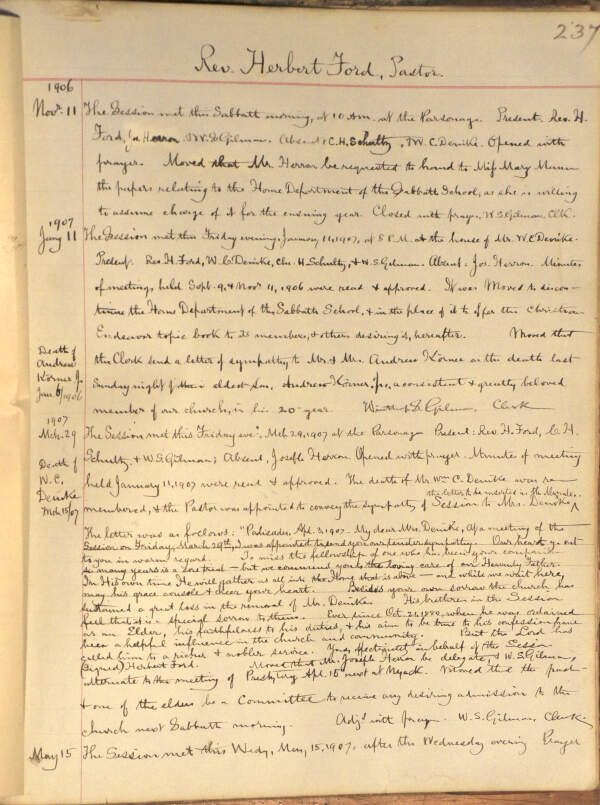 237
Rev. Herbert Ford, Pastor.
1906
Novr. 11 The Session met this Sabbath morning, at 10 A.M. at the Parsonage. Present. Rev. H.
Ford, Jos Herron & W.S. Gilman. Absent, C.H. Schultz, & W.C. Denike. Opened with
prayer. Moved that Mr. Herron be requested to hand to Miss Mary Munn
the papers relating to the Home Department of the Sabbath School, as she is willing
to assume charge of it for the ensuing year. Closed with prayer, W.S. Gilman. Clk.
1907
Jany 11 The Session met this Friday evening, January 11, 1907, at 8 P.M. at the house of Mr. W.C. Denike.
Present. Rev. H. Ford, W.C. Denike, Chs. H. Schultz, & W.S. Gilman. Absent: Jos. Herron. Minutes
of meetings held Sept. 9, & Novr. 11, 1906 were read & approved. It was Moved to discon-
tinue the Home Department of the Sabbath School, & in the place of it to offer the Christian
Endeavor topic book to its members, & others desiring it, hereafter. Moved that
the Clerk send a letter of sympathy to Mr. & Mrs. Andrew Körner on the death last
Sunday night of their eldest son, Andrew Körner, Jr., a consistent & greatly beloved
member of our church, in his 20th year. Winthrop S. Gilman, Clerk
Death of
Andrew
Körner Jr.
Jan. 6/1906
1907
Mch. 29 The Session met this Friday eve'g, Mch. 29, 1907 at the Parsonage Present: Rev. H. Ford, C.H.
Schultz, & W.S. Gilman; Absent, Joseph Herron. Opened with prayer. Minutes of meeting
held January 11, 1907 were read & approved. The death of Mr. Wm C. Denike was re-
membered, & the Pastor was appointed to convey the sympathy of Session to Mrs. Denike
the letter to be inserted in the Minutes.
Death of
W.C.
Denike
Mch 15/07
The letter was as follows: "Palisades, Apl. 3, 1907. My dear Mrs. Denike, At a meeting of the
Session on Friday, March 29th, I was appointed to send you our tender sympathy. Our hearts go out
to you in warm regard. To miss the fellowship of one who has been your companion
so many years is a sore trial — but we commend you to the loving care of our Heavenly Father.
In His own time He will gather us all into the Home that is above — and while we wait here
may his grace console & cheer your heart. Besides your own sorrow the church has
sustained a great loss in the removal of Mr. Denike. His brethren in the Session
feel that it is a special sorrow to them. Ever since Oct. 21, 1888, when he was ordained
as an Elder, his faithfulness to his duties, & his aim to be true to his confession have
been a helpful influence in the church and community. But the Lord has
called him to a richer & nobler service. Yours affectionately in behalf of the Session
(Signed) Herbert Ford. Moved that Mr. Joseph Herron be delegate, & W.S. Gilman,
alternate to the meeting of Presbytery Apl. 15 next at Nyack. Moved that the pastor
& one of the elders be a Committee to receive any desiring admission to the
church next Sabbath morning. Adj'd with prayer. W.S. Gilman, Clerk.
May 15 The Session met this Wedy, May, 15, 1907, after the Wednesday evening Prayer